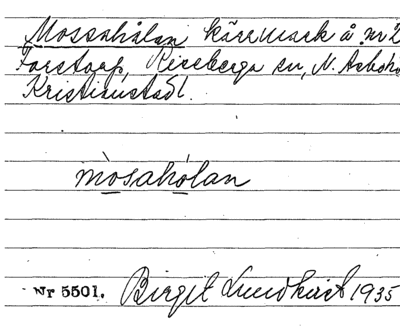 Mossahålan kärrmark å nr 2
Forstorp, Riseberga sn, N. Åsbo hd
Kristianstads l.
mosahólan
Nr 5501. Birgit Lundkvist 1935